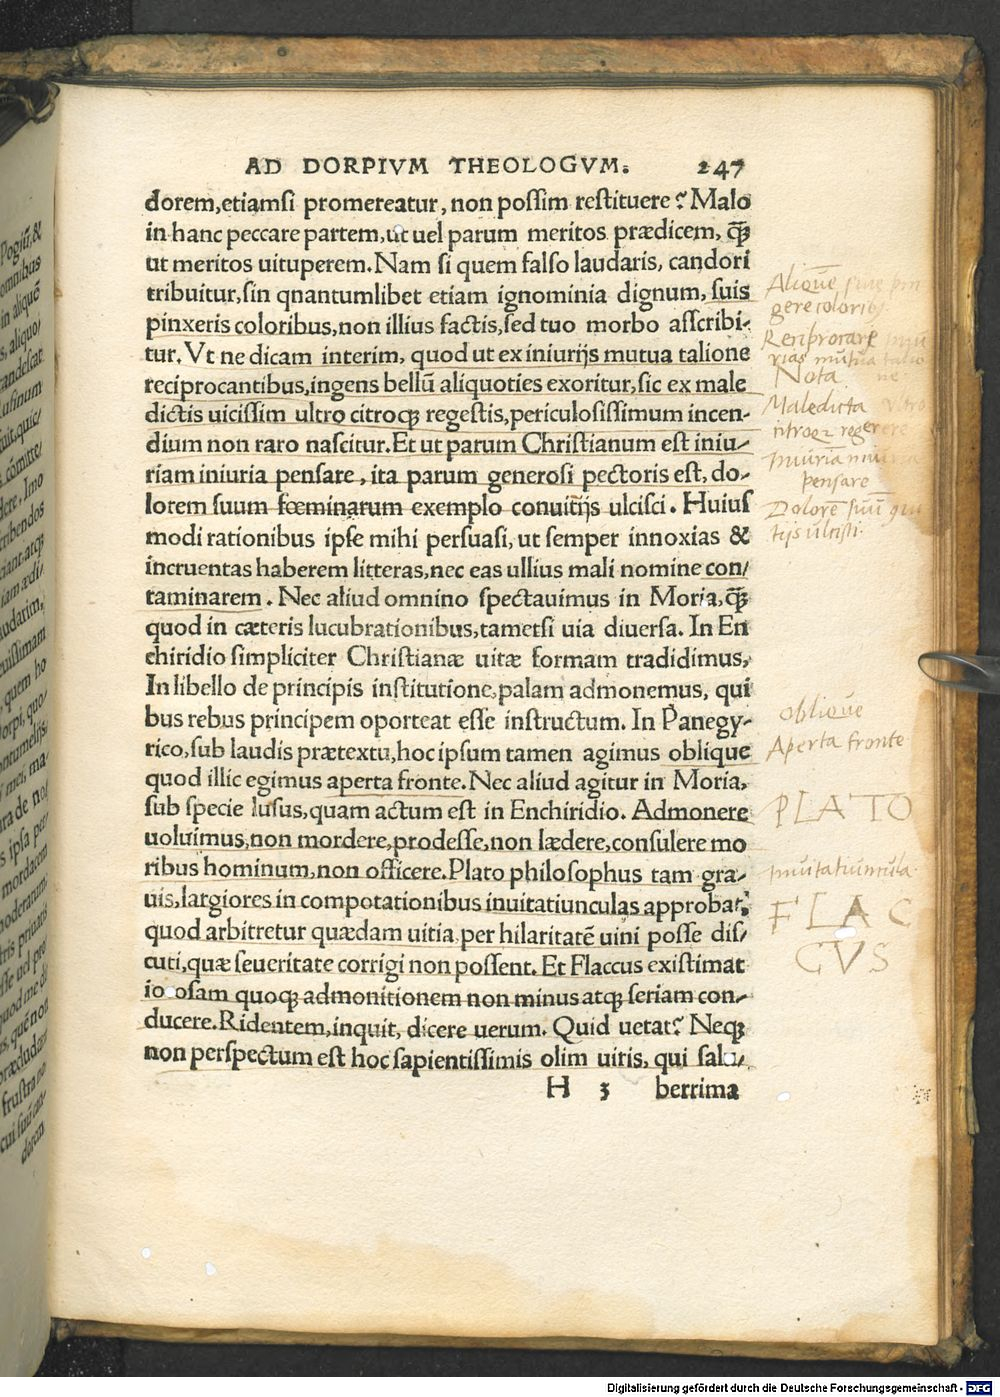 AD DORPIVM THEOLOGVM. 247
dorem,etiamsi promereatur, non possim restituere? Malo
in hanc peccare partem,ut uel parum meritos prædicem, q̃ꝫ
ut meritos uituperem. Nam si quem falso laudaris, candori
tribuitur, sin qnantumlibet etiam ignominia dignum, suis
pinxeris coloribus, non illius factis, sed tuo morbo asscribi-
tur. Vt ne dicam interim, quod ut ex iniurijs mutua talione
reciprocantibus, ingens bellũ aliquoties exoritur, sic ex male
dictis uicissim ultro citroqꝫ regestis, periculosissimum incen-
dium non raro nascitur. Et ut parum Christianum est iniu-
riam iniuria pensare, ita parum generosi pectoris est, do-
lorem suum fœminarum exemplo conuitijs ulcisci. Huius
modi rationibus ipse mihi persuasi, ut semper innoxias &
incruentas haberem litteras, nec eas ullius mali nomine con/
taminarem. Nec aliud omnino spectauimus in Moria, q̃ꝫ
quod in cæteris lucubrationibus, tametsi uia diuersa. In En
chiridio simpliciter Christianæ uitæ formam tradidimus,
In libello de principis institutione, palam admonemus, qui
bus rebus principem oporteat esse instructum. In Panegy-
rico, sub laudis prætextu, hoc ipsum tamen agimus oblique
quod illic egimus aperta fronte. Nec aliud agitur in Moria,
sub specie lusus, quam actum est in Enchiridio. Admonere
uoluimus, non mordere, prodesse, non lædere, consulere mo
ribus hominum, non officere. Plato philosophus tam gra-
uis, largiores in compotationibus inuitatiunculas approbat,
quod arbitretur quædam uitia per hilaritatẽ uini posse dis/
cuti, quæ seueritate corrigi non possent. Et Flaccus existimat
io osam quoqꝫ admonitionem non minus atqꝫ seriam con-
ducere. Ridentem, inquit, dicere uerum. Quid uetat? Neqꝫ
non perspectum est hoc sapientissimis olim uiris, qui salu-
H 3 berrima
Aliquẽ suis pin
gere coloribꝫ
Reciprocare
rias mutua talio
Nota ne
Maledicta vltro
citroqꝫ regerere
Iniuriã
pensare
Dolorẽ suũ
tijs ulcisci.
oblique
Aperta fronte
PLATO
Inuitatiuncula
FLAC
CVS
Digitalisierung gefördert durch die Deutsche Forschungsgemeinschaft - DFG